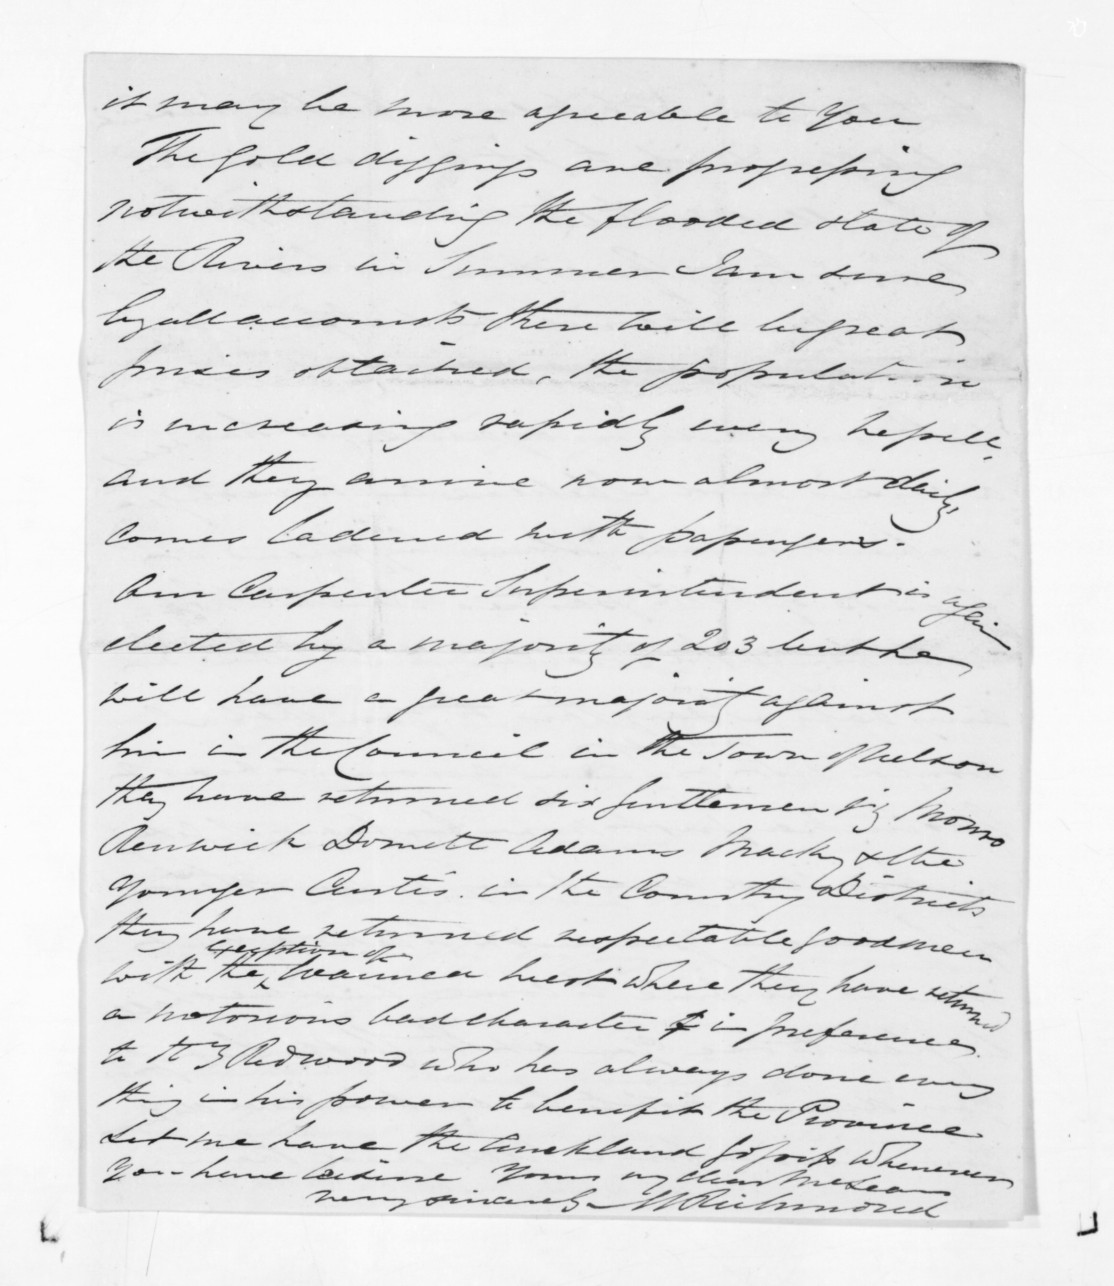 it may be more agreeable to you
The Gold diggings are progressing
notwithstanding the flooded state of
the Rivers in Summer I am sure
by all accounts there will be great
prizes obtained, the population
is increasing rapidly every
and they arrive now almost daily,
comes ladened with passengers.
Our Carpenter Superintendent is again
elected by a majority of 203 but he
will have a great majority against
him in the Council in the Town of Nelson
they have returned six gentlemen viz Monro
Renwick Domett Adams Macky & the
younger Curtis. in the Country Districts
they have returned respectable good men
with the exception of Waimea West where they have returned
a notorious bad character in preference
to Hy Redwood who has always done every
thing in his power to benefit the Province
Let me have the Auckland gossip whenever
you have leisure Yours my dear McLean
very sincerely M Richmond